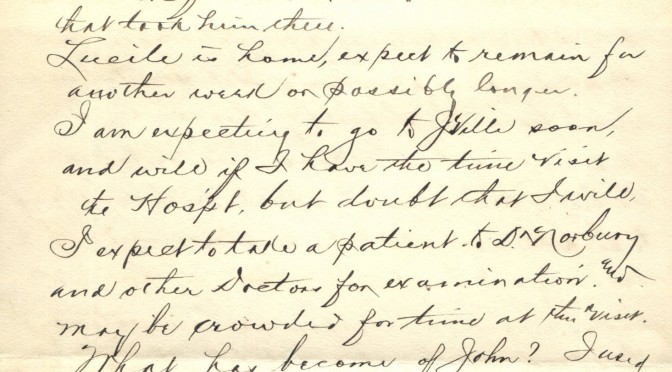 that took him there.
Lucile is home, expect to remain for
another week or possibly longer.
I am expecting to go to J'Ville soon,
and will if I have the time visit
the Hospt, but doubt that I will,
I expect to take a patient to Dr Norbury
and other Doctors for examination. and
may be crowded for time at this visit.
What has become of John? I used